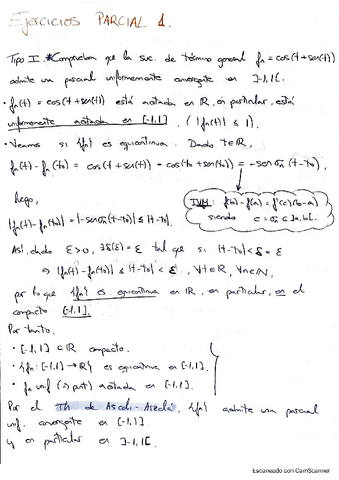 EJERCICIOS PARCIAL 1.
Tipo I. *Comprueba que la suc. de término general fn = cos(t + sen(t))
admite una parcial uniformemente convergente en ]-1,1[.
• fn(t) = cos(t + sen(t)) está acotada en ℝ, en particular, está
uniformemente acotada en [-1,1]. (|fn(t)| ≤ 1).
• Veamos si {fn} es equicontinua. Dado t∈ℝ,
fn(t) - fn(t₀) = cos(t + sen(t)) - cos(t₀ + sen(t₀)) = -sen (t-t₀),
Luego,
TVM: f(b) - f(a) = f'(c)(b-a)
siendo c = ∈ ]a,b[.
|fn(t) - fn(t₀)| = |-sen (t-t₀)| ≤ |t-t₀|.
Así, dado ε>0, ∃ δ(ε) = ε tal que si |t-t₀| < δ = ε
⇒ |fn(t) - fn(t₀)| ≤ |t-t₀| < ε, ∀t∈ℝ, ∀n∈ℕ,
por lo que {fn} es equicontinua en ℝ, en particular, en el
compacto [-1,1].
Por tanto,
• [-1,1] ⊂ ℝ compacto.
• {fn: [-1,1] → ℝ} es equicontinua en [-1,1].
• fn unif (⇒ punt) acotada en [-1,1].
Por el Th de Ascoli-Arzelá, {fn} admite una parcial
unif. convergente en [-1,1]
y en particular en ]-1,1[.
Escaneado con CamScanner